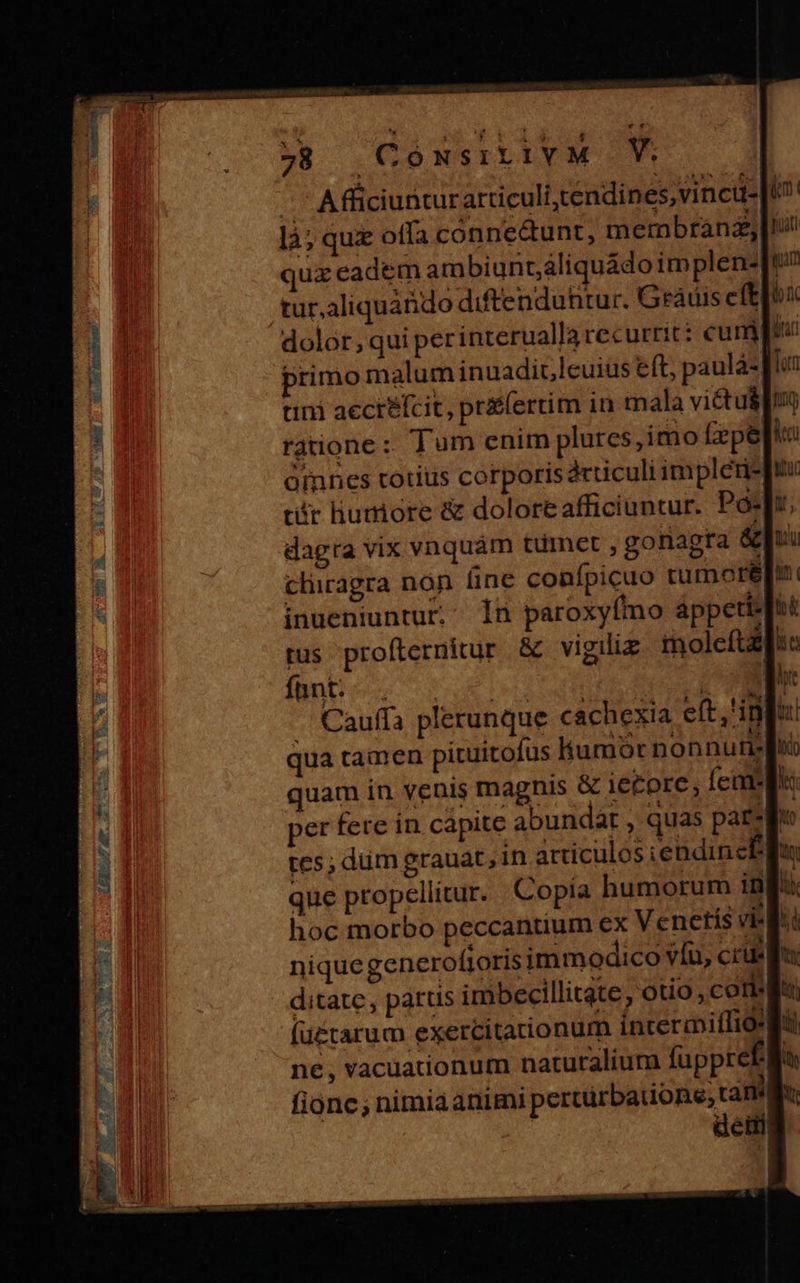 78 CONSILIVM V.
Afficiunturarticuli,tendines,vincu-
la; quæ ossa connectunt, membranæ,
quæ eadem ambiunt,aliquãdo implen-
tur,aliquãdo distenduntur. Grauis est
dolor, qui per interualla recurrit: cum
primo malum inuadit,leuius est, paula-
tim accrescit, præsertim in mala victus
ratione: Tum enim plures, imo sæpe
omnes totius corporis articuli implen-
tur humore & dolore afficiuntur. Po-
dagra vix vnquám tumet, gonagra &
chiragra non sine conspicuo tumore
inueniuntur. In paroxysmo appeti-
tus prosternitur & vigiliæ molestæ
sunt.
Caussa plerunque cachexia est, in
qua tamen pituitosus humor nonnun-
quam in venis magnis & iecore, sem-
per fere in capite abundat, quas par-
tes, dum grauat, in articulos tendines-
que propellitur. Copia humorum in
hoc morbo peccantium ex Veneris vi-
nique generosioris immodico vsu, cru-
ditate, partis imbecillitate, otio, con-
suetarum exercitationum intermissio-
ne, vacuationum naturalium suppres-
sione; nimia animi perturbatione, tan-
dem